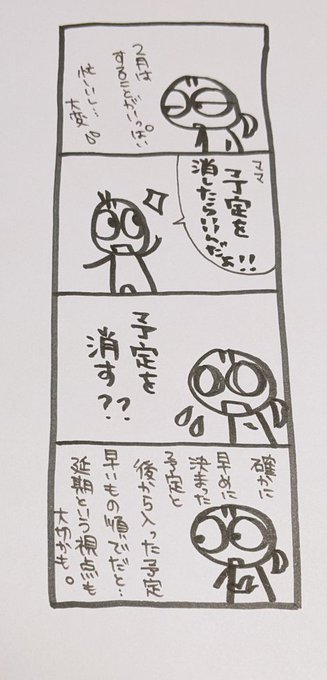 2月は
することがいっぱい
忙しいし…
大変。
ママ
予定を
消したらいいんだよ!!
予定を
消す??
確かに
早めに
決まった
予定と
後から入った予定
早いもの順でだと…
延期という視点も
大切かも。